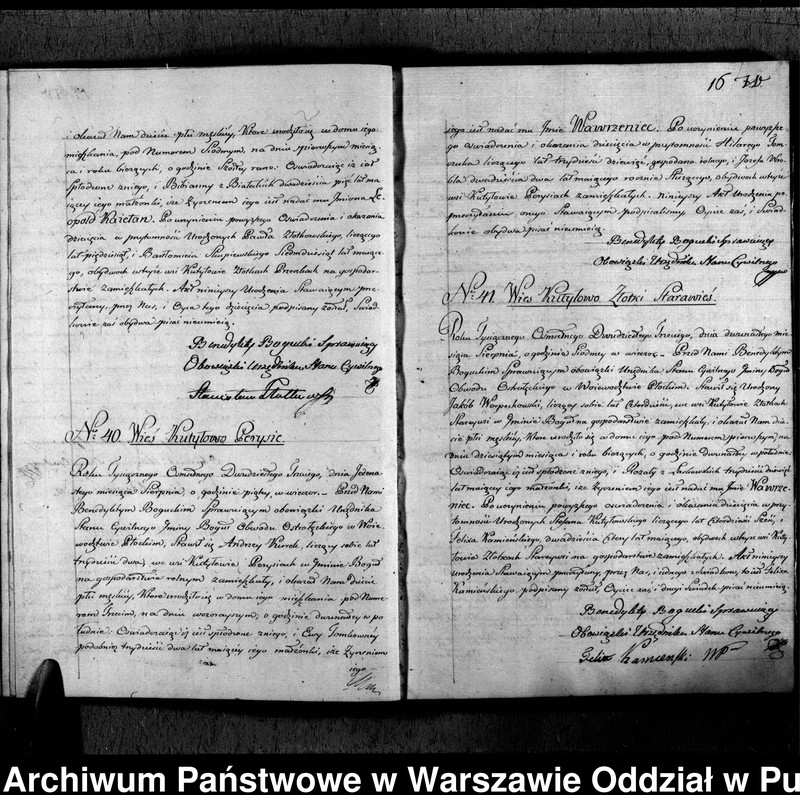 i okazał Nam dziecie płci męskiey, Które urodziło się w domu iego
mieszkania, pod Numerem Siodmym, na dniu pierwszym miesią
ca i roku bieżących, o godzinie Szostey rano: Oswiadczaiąc iż iest
spłodzone z niego, i Bibianny z Białickich dwadziescia pięć lat ma
iącey iego małżonki, iże życzeniem iego iest nadać mu Imiona Le
opold Kaietan. Po uczynieniu powyższego Oswiadczenia i okazania
dziecięcia w przytomności Urodzonych Pawła Złotkowskiego, liczącego
lat pięćdziesiąt, i Bartłomieia Skupiewskiego Siedmdziesiąt lat maiące
go, obydwóch w teyże wsi Kutyłowie Złotkach Przeczkach na gospodar
stwie zamieszkałych. Akt ninieyszy Urodzenia Stawaiącym prze
czytany, przez Nas, i Oyca tego dziecięcia podpisany został, Swiad
kowie zaś obydwa pisać nieumieią.
Benedykty Bogucki Sprawuiący
Obowiązki Urzędnika Stanu Cywilnego
Stanisław
No. 40. Wieś Kutyłowo Perysie.
Roku Tysiącznego Osmsetnego Dwudziestego Trzeciego, dnia Jedena
stego miesiąca Sierpnia, o godzinie piątey, w wieczor. – Przed Nami
Benedyktym Boguckim Sprawuiącym obowiązki Urzędnika
Stanu Cywilnego Gminy Boguł Obwodu Ostrołęckiego w Woie
wodztwie Płockim, Stawił się Andrzey Kurek, liczący sobie lat
trzydzieści dwa, we wsi Kutyłowie Perysiach w Gminie Boguł
na gospodarstwie rolnym zamieszkały, i okazał Nam Dziecie
płci męskiey, Które urodziło się w domu iego mieszkania pod Nume
rem Trzecim, na dniu wczorayszym, o godzinie dwunastey w po
łudnie: Oswiadczaiąc iż iest spłodzone z niego, i Ewy
podobnież trzydzieści dwa lat maiącey iego małżonki, iże życzeniem
iego
16
iego iest nadać mu Imie Wawrzeniec. Po uczynieniu powyższe
go oswiadczenia i okazania dziecięcia w przytomności Hilarego Gom
liczącego lat trzydzieści dziewięć, gospodarza rolnego, i Jozefa
dwadziescia dwa lat maiącego rocznie Służącego, obydwóch w teyże
wsi Kutyłowie Perysiach zamieszkałych. Ninieyszy Akt Urodzenia po
przeczytaniu onego Stawaiącym podpisaliśmy, Oyciec zaś, i Swiad
kowie obydwa pisać nieumieią.
Benedykty Bogucki Sprawuiący
Obowiązki Urzędnika Stanu Cywilnego
No. 41. Wieś Kutyłowo Złotki Starawieś.
Roku Tysiącznego Osmsetnego Dwudziestego Trzeciego, dnia dwunastego mie
siąca Sierpnia, o godzinie Siodmey w wieczor. – Przed Nami Benedyktym
Boguckim Sprawuiącym obowiązki Urzędnika Stanu Cywilnego Gminy Boguł
Obwodu Ostrołęckiego w Woiewodztwie Płockim. Stawił się Urodzony
Jakób Wozpechowski, liczący sobie lat Czterdzieści, we wsi Kutyłowie Złotkach
Starejwsi w Gminie Boguł na gospodarstwie zamieszkały, i okazał Nam dzie
cie płci męskiey, Które urodziło się w domu iego pod Numerem pierwszym, na
dniu dziewiątym miesiąca i roku bieżących, o godzinie dwunastey w południe.
Oswiadczaiąc iż iest spłodzone z niego, i Rozalii z trzydzieści dziewięć
lat maiącey iego małżonki, iże życzeniem iego iest nadać mu Imie Wawrze
niec. Po uczynieniu powyższego oswiadczenia i okazania dziecięcia w przy
tomności Urodzonych Stefana Kutyłowskiego liczącego lat Czterdzieści Sześć, i
Felixa Kamińskiego, dwadzieścia Cztery lat maiącego, obydwóch w teyże wsi Kuty
łowie Złotkach Stareywsi na gospodarstwie zamieszkałych. Akt ninieyszy
Urodzenia Stawaiącym przeczytany, przez Nas, i iednego z Swiadków, to iest Felixa
Kamińskiego podpisany został, Oyciec zaś, i drugi Swiadek pisać nieumieią.
Benedykty Bogucki Sprawuiący
Obowiązki Urzędnika Stanu Cywilnego
Felix Kamienski
Archiwum Państwowe w Warszawie Oddział w Pu